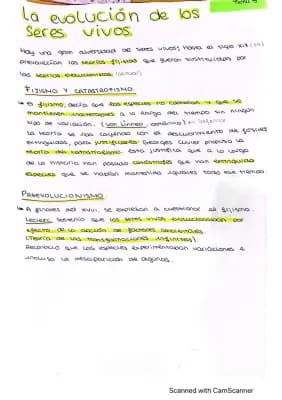 La evolución de los
seres vivos.
Hay una gran diversidad de seres vivos; hasta el siglo XIX
prevalecían las teorías fijistas que fueron sustituidas por
las teorías evolucionistas (actual)
FIJISMO Y CATASTROFISMO
el fijismo, decía que las especies no cambian y que se
mantienen inalterables a lo largo del tiempo sin ningún
tipo de variación. (Von Linneo,
La teoría se iba cayendo con el descubrimiento de fósiles
extinguidos, para justificarlo Georges Cuvier propuso la
teoría del catastrofismo. Esta justifica que a lo largo
de la historia han pasado catástrofes que han extinguido
especies que se habían mantenido iguales todo ese tiempo
PREEVOLUCIONISMO
A finales del XVIII, se empiezan a cuestionar al fijismo.
Leclerc sostenía que los seres vivos evolucionaban por
efecto de la acción de factores ambientales.
(Teoría de las transformaciones infinitas).
Reconoció que las especies experimentaban variaciones e
incluso la desaparición de algunas.
Scanned with CamScanner